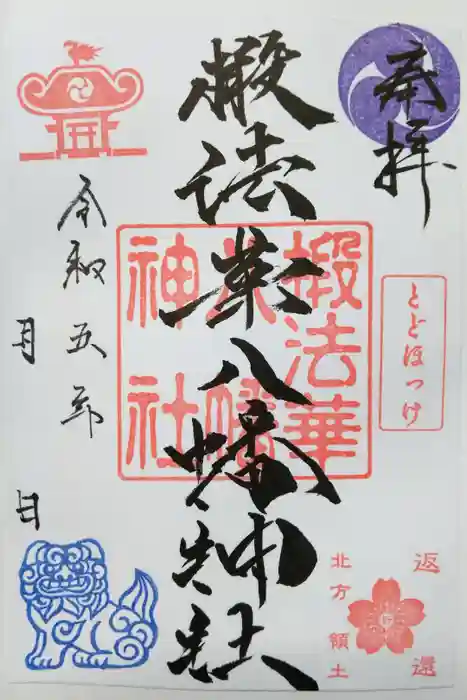 奉拝
とどほつけ
返還
北方領土
椴法華八幡神社
椴法華
八幡
神社
令和五年
月 日